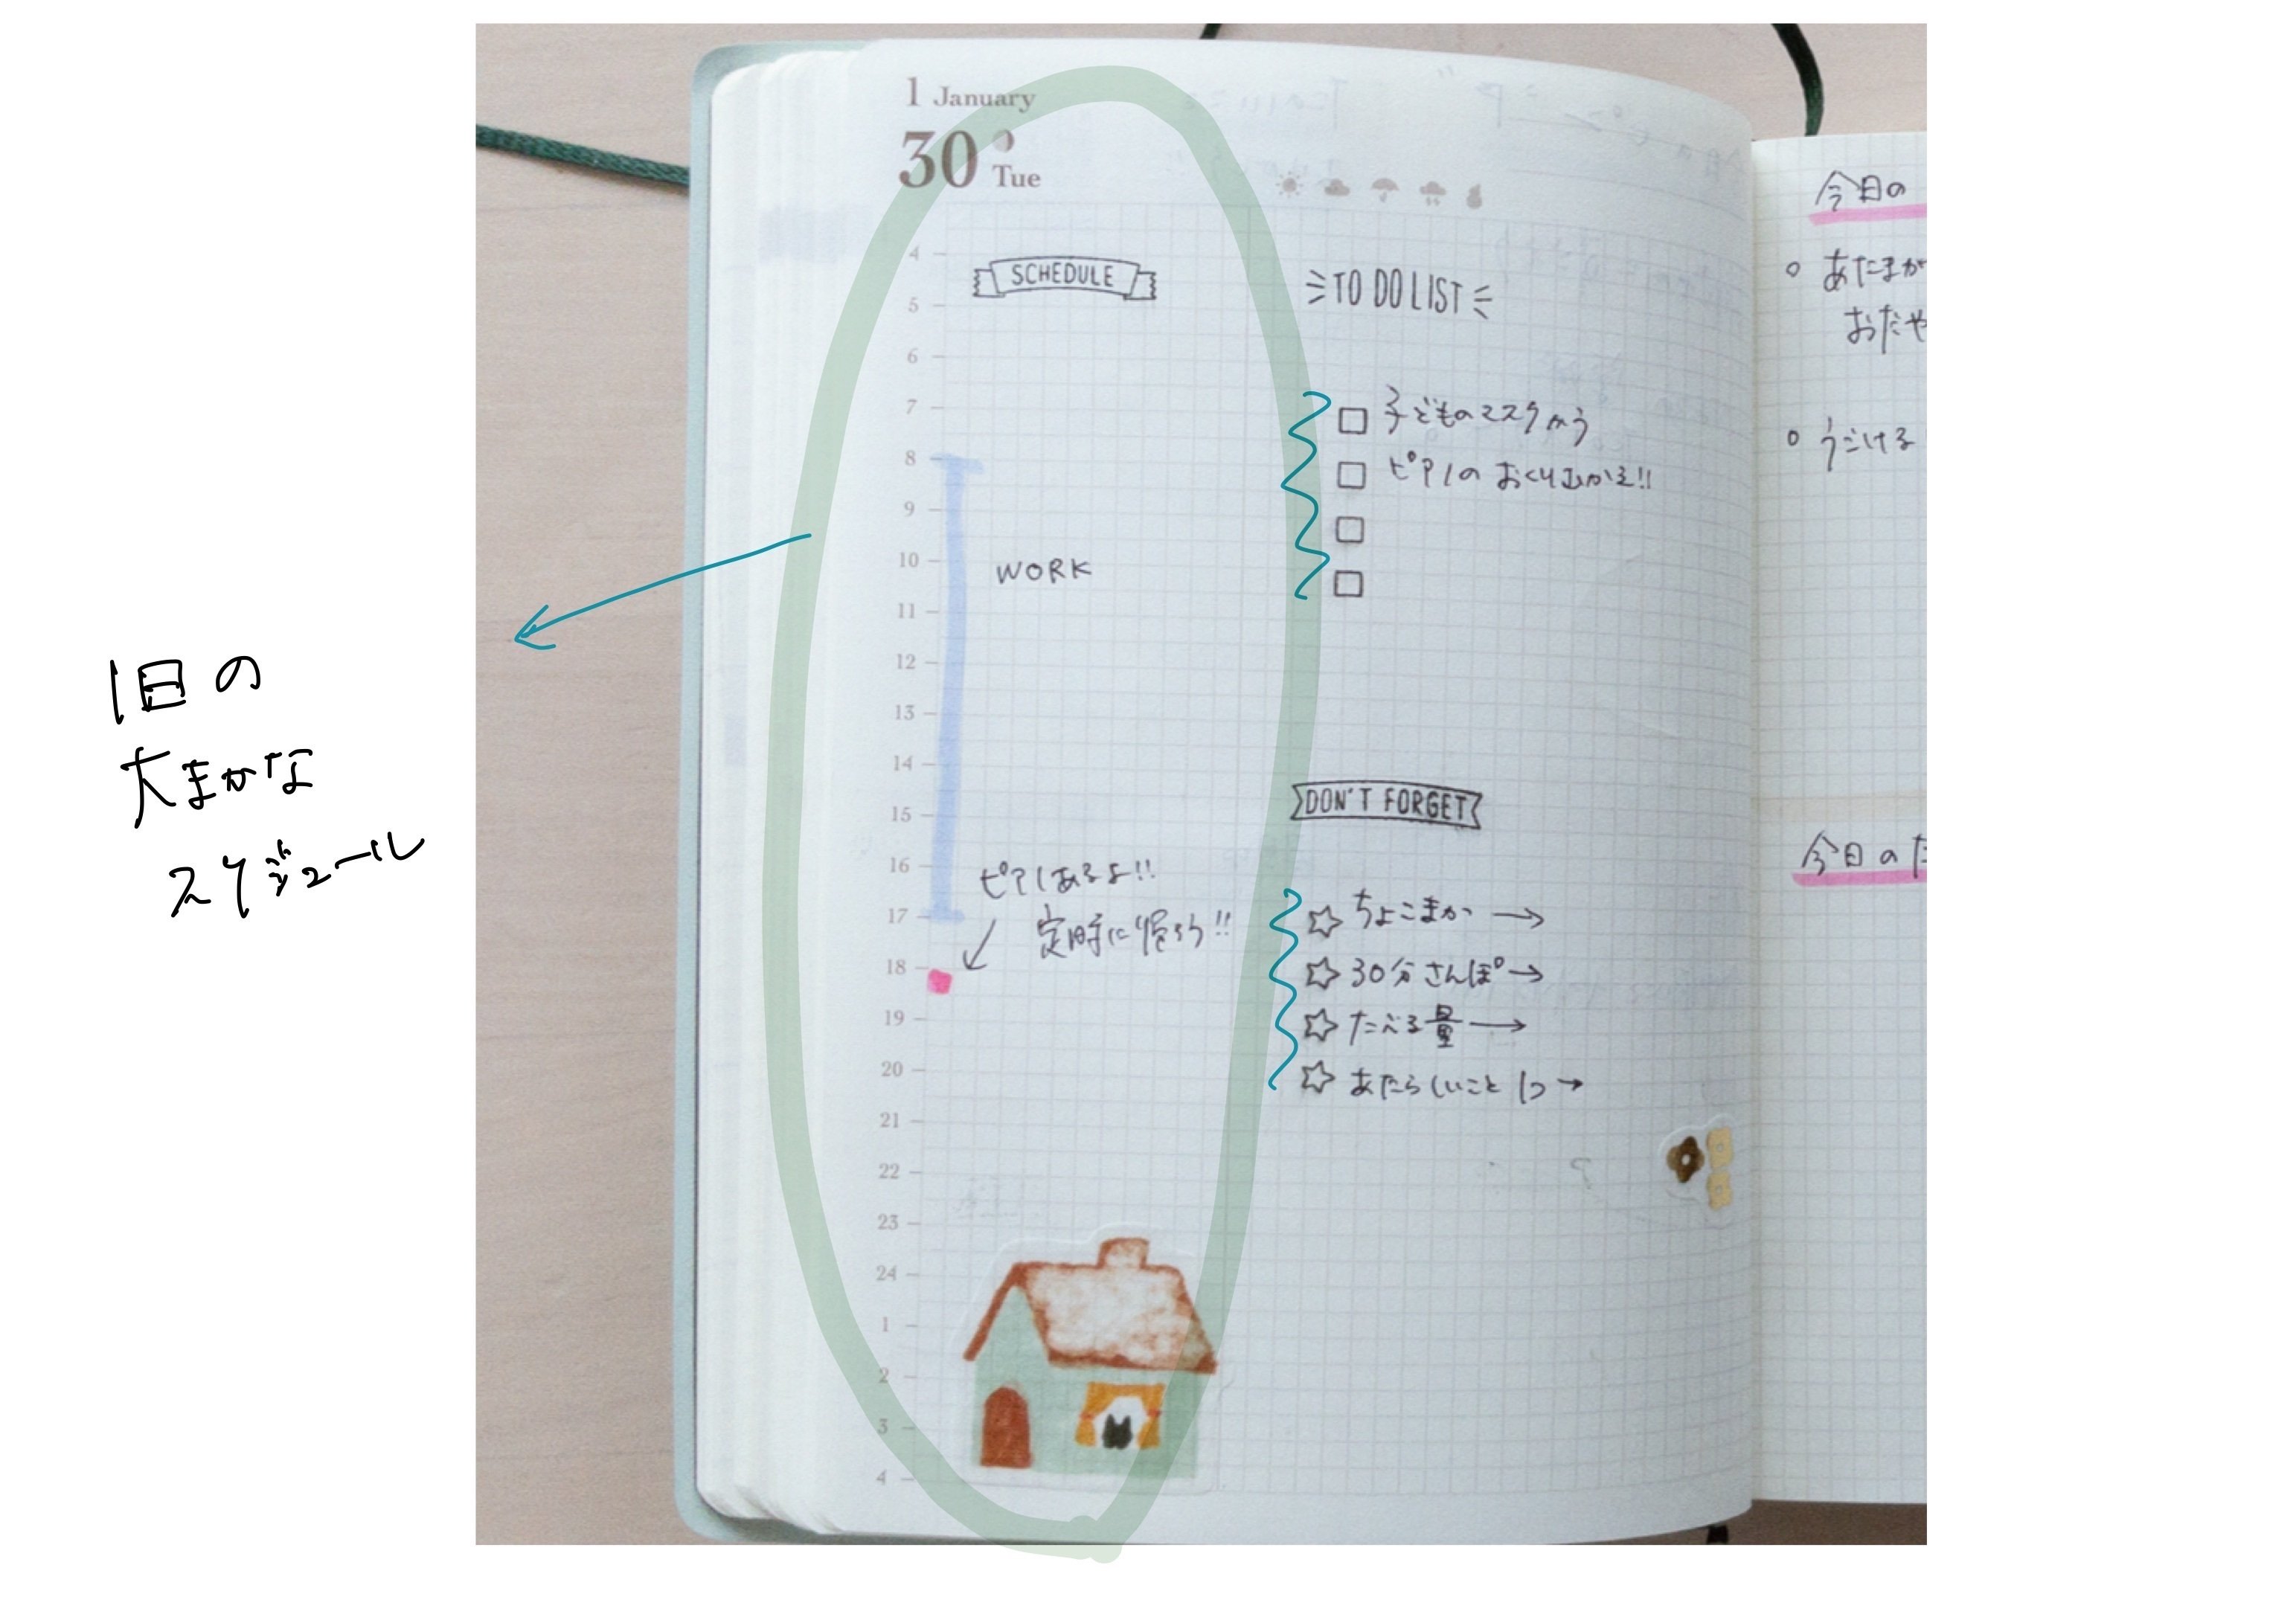 1 January
30 Tue
SCHEDULE
4
5
6
7
8
9
10
11
12
13
14
15
16
17
18
19
20
21
22
23
24
1
2
3
4
WORK
ピアノあるよ!!
定時に帰ろう!!
TO DO LIST
子どものマスクかう
ピアノの おくりむかえ!!
DON'T FORGET
ちょこまか →
30分さんぽ→
たべる量→
あたらしいこと 1つ→
今日の
あたまが
おだや
うごける
今日のた
1日の
大まかな
スケジュール